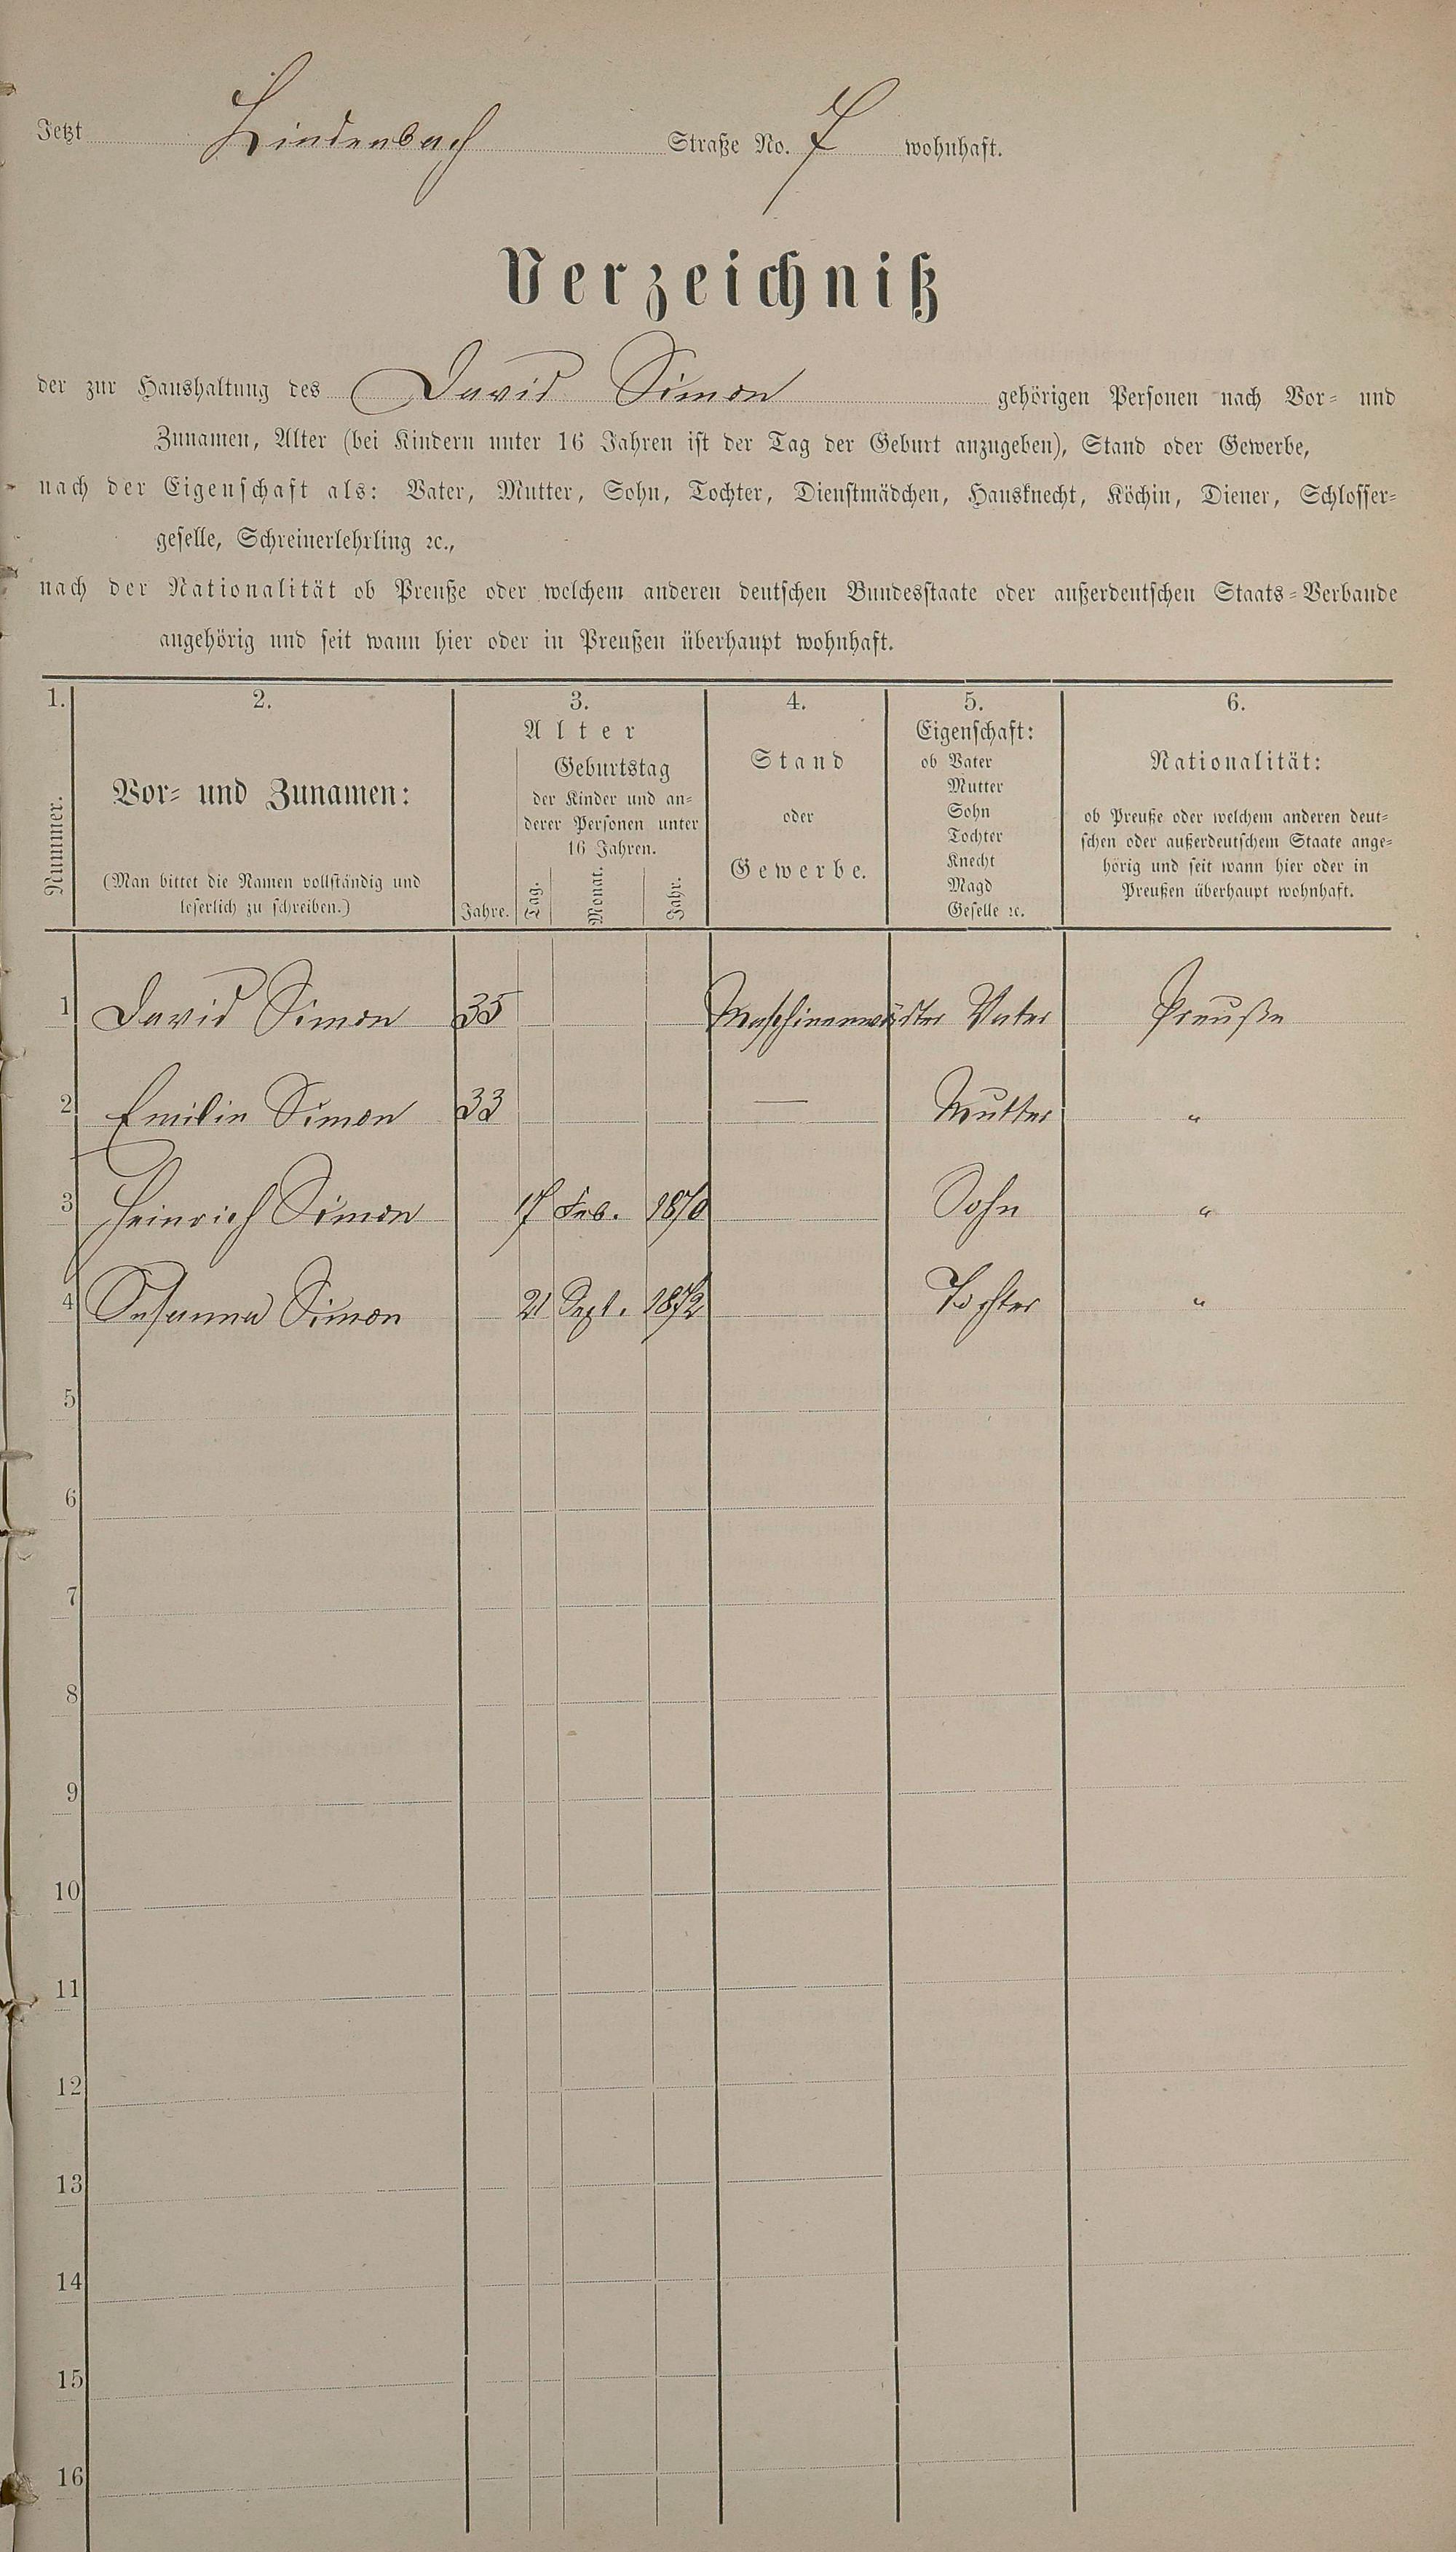 Jetzt Lindenbach Straße No. 7 wohnhaft.
Verzeichniß
der zur Haushaltung des David Simon gehörigen Personen nach Vor- und
Zunamen, Alter (bei Kindern unter 16 Jahren ist der Tag der Geburt anzugeben), Stand oder Gewerbe,
nach der Eigenschaft als: Vater, Mutter, Sohn, Tochter, Dienstmädchen, Hausknecht, Köchin, Diener, Schlosser-
geselle, Schreinerlehrling ꝛc.,
nach der Nationalität ob Preuße oder welchem anderen deutschen Bundesstaate oder außerdeutschen Staats-Verbande
angehörig und seit wann hier oder in Preußen überhaupt wohnhaft.
1. 2. 3. 4. 5. 6.
Nummer.
Vor- und Zunamen:
(Man bittet die Namen vollständig und
leserlich zu schreiben.)
Alter
Geburtstag
der Kinder und an-
derer Personen unter
16 Jahren.
Jahre. Tag. Monat. Jahr.
Stand
oder
Gewerbe.
Eigenschaft:
ob Vater
Mutter
Sohn
Tochter
Knecht
Magd
Geselle ꝛc.
Nationalität:
ob Preuße oder welchem anderen deut-
schen oder außerdeutschem Staate ange-
hörig und seit wann hier oder in
Preußen überhaupt wohnhaft.
1 David Simon 35 Maschinenwärter Vater Preuße
2 Emilie Simon 33 — Mutter "
3 Heinrich Simon 17 Feb. 1870 Sohn "
4 Susanna Simon 21 Sept. 1872 Tochter "
5
6
7
8
9
10
11
12
13
14
15
16